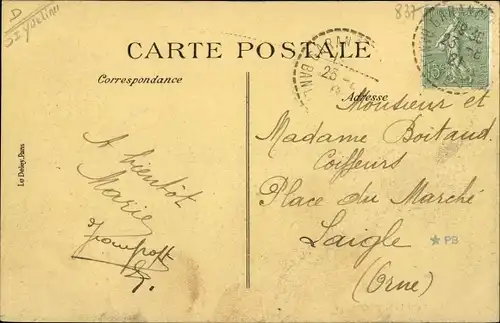 837
CARTE POSTALE
Correspondance
Adresse
Monsieur et
Madame Boitaud
Coiffeurs
Place du Marché
Laigle
(Orne)
A bientôt
Marie
Le Deley, Paris
PB